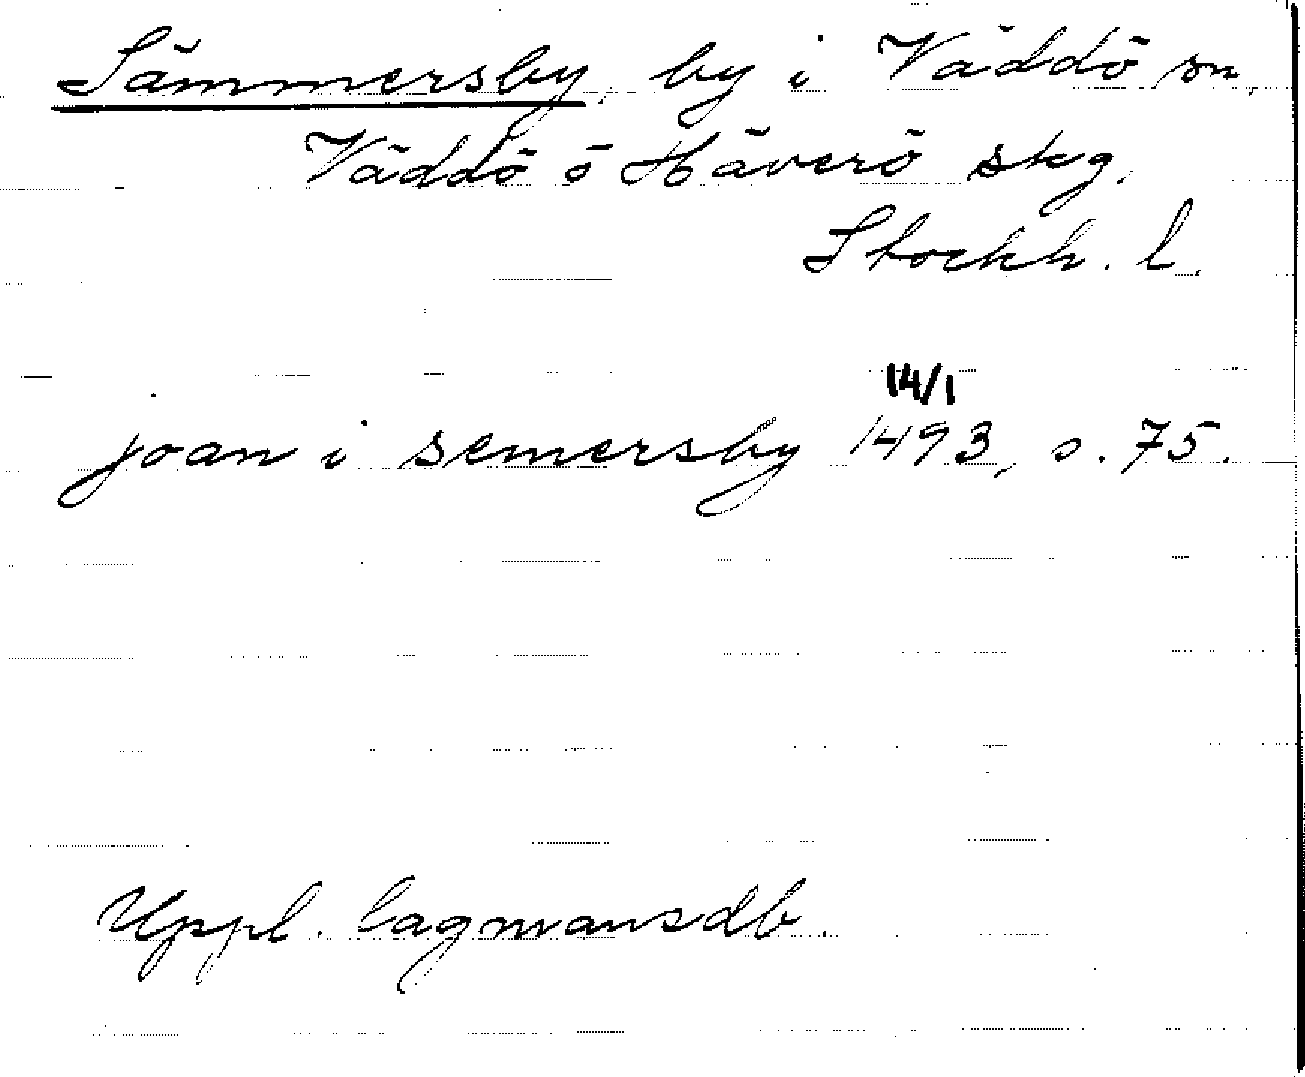 Sämmersby, by i Väddö sn,
Väddö o Häverö skg.
Stockh. l.
14/1
joan i semersby 1493, s. 75.
Uppl. lagmansdb.